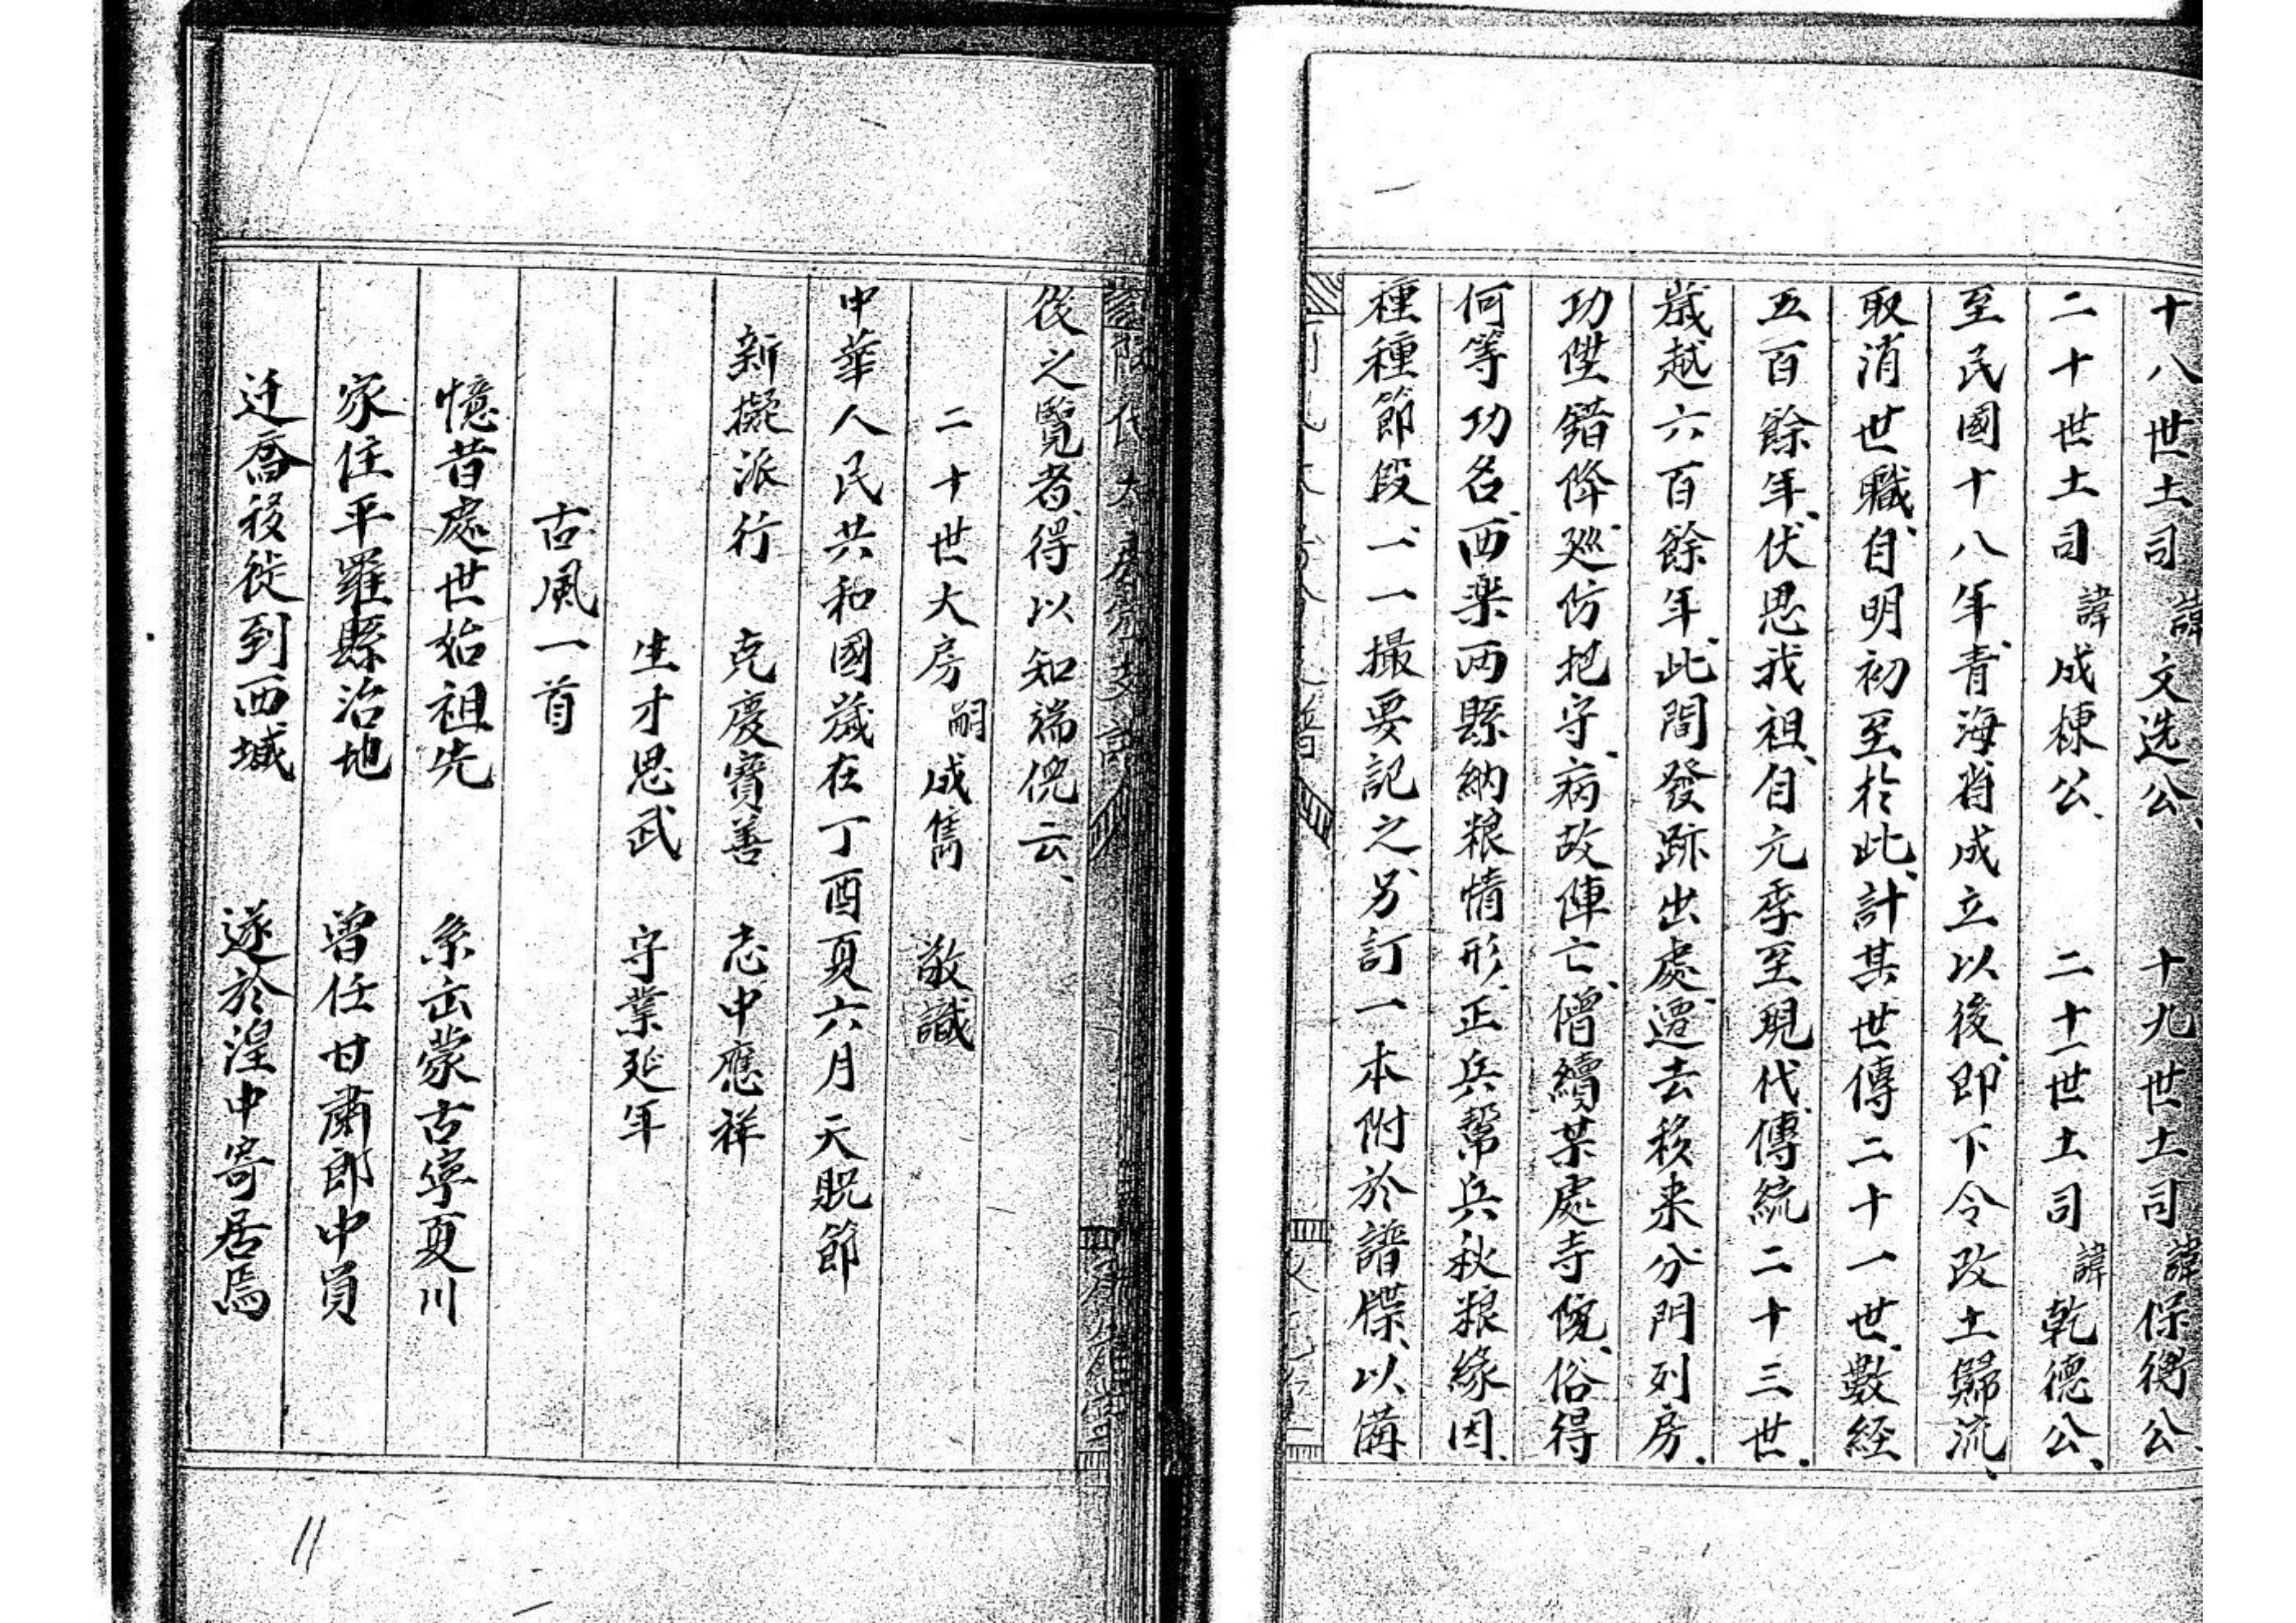 十八世土司 諱文选公、 十九世土司 諱保衡公、
二十世土司 諱成棟公、 二十一世土司 諱乾德公、
至民國十八年、青海省成立以後、即下令改土歸流、
取消世職、自明初至於此、計其世傳二十一世、數經
五百餘年、伏思我祖、自元季至現代、傳統二十三世、
歲越六百餘年、此間發跡出處、遷去移来、分門列房、
功陞錯降、廵防把守、病故陣亡、僧續某處寺院、俗得
何等功名、西楽两縣納粮情形、正兵幫兵秋粮緣因、
種種節段、一、一一撮要記之、另訂一本附於譜牒、以備
後之覽者、得以知端倪云、
二十世大房 嗣成雋 敬識
中華人民共和國歲在丁酉夏六月天貺節
新擬派行 克慶寶善 志中應祥
生才思武 守業延年
古風一首
憶昔處世始祖先 系出蒙古寧夏川
家住平羅縣治地 曾任甘肅郎中員
迁喬移徙到西域 遂於湟中寄居焉
11